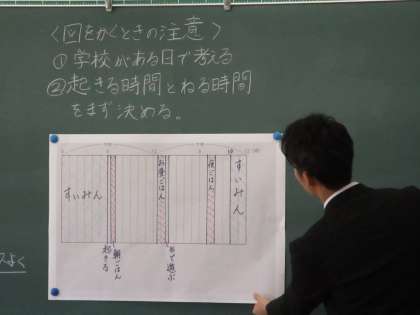 〈図をかくときの注意〉
①学校がある日で考える
②起きる時間とねる時間
をまず決める。
すいみん
起きる
朝ごはん
お昼ごはん
外で遊ぶ
夜ごはん
すいみん
よく